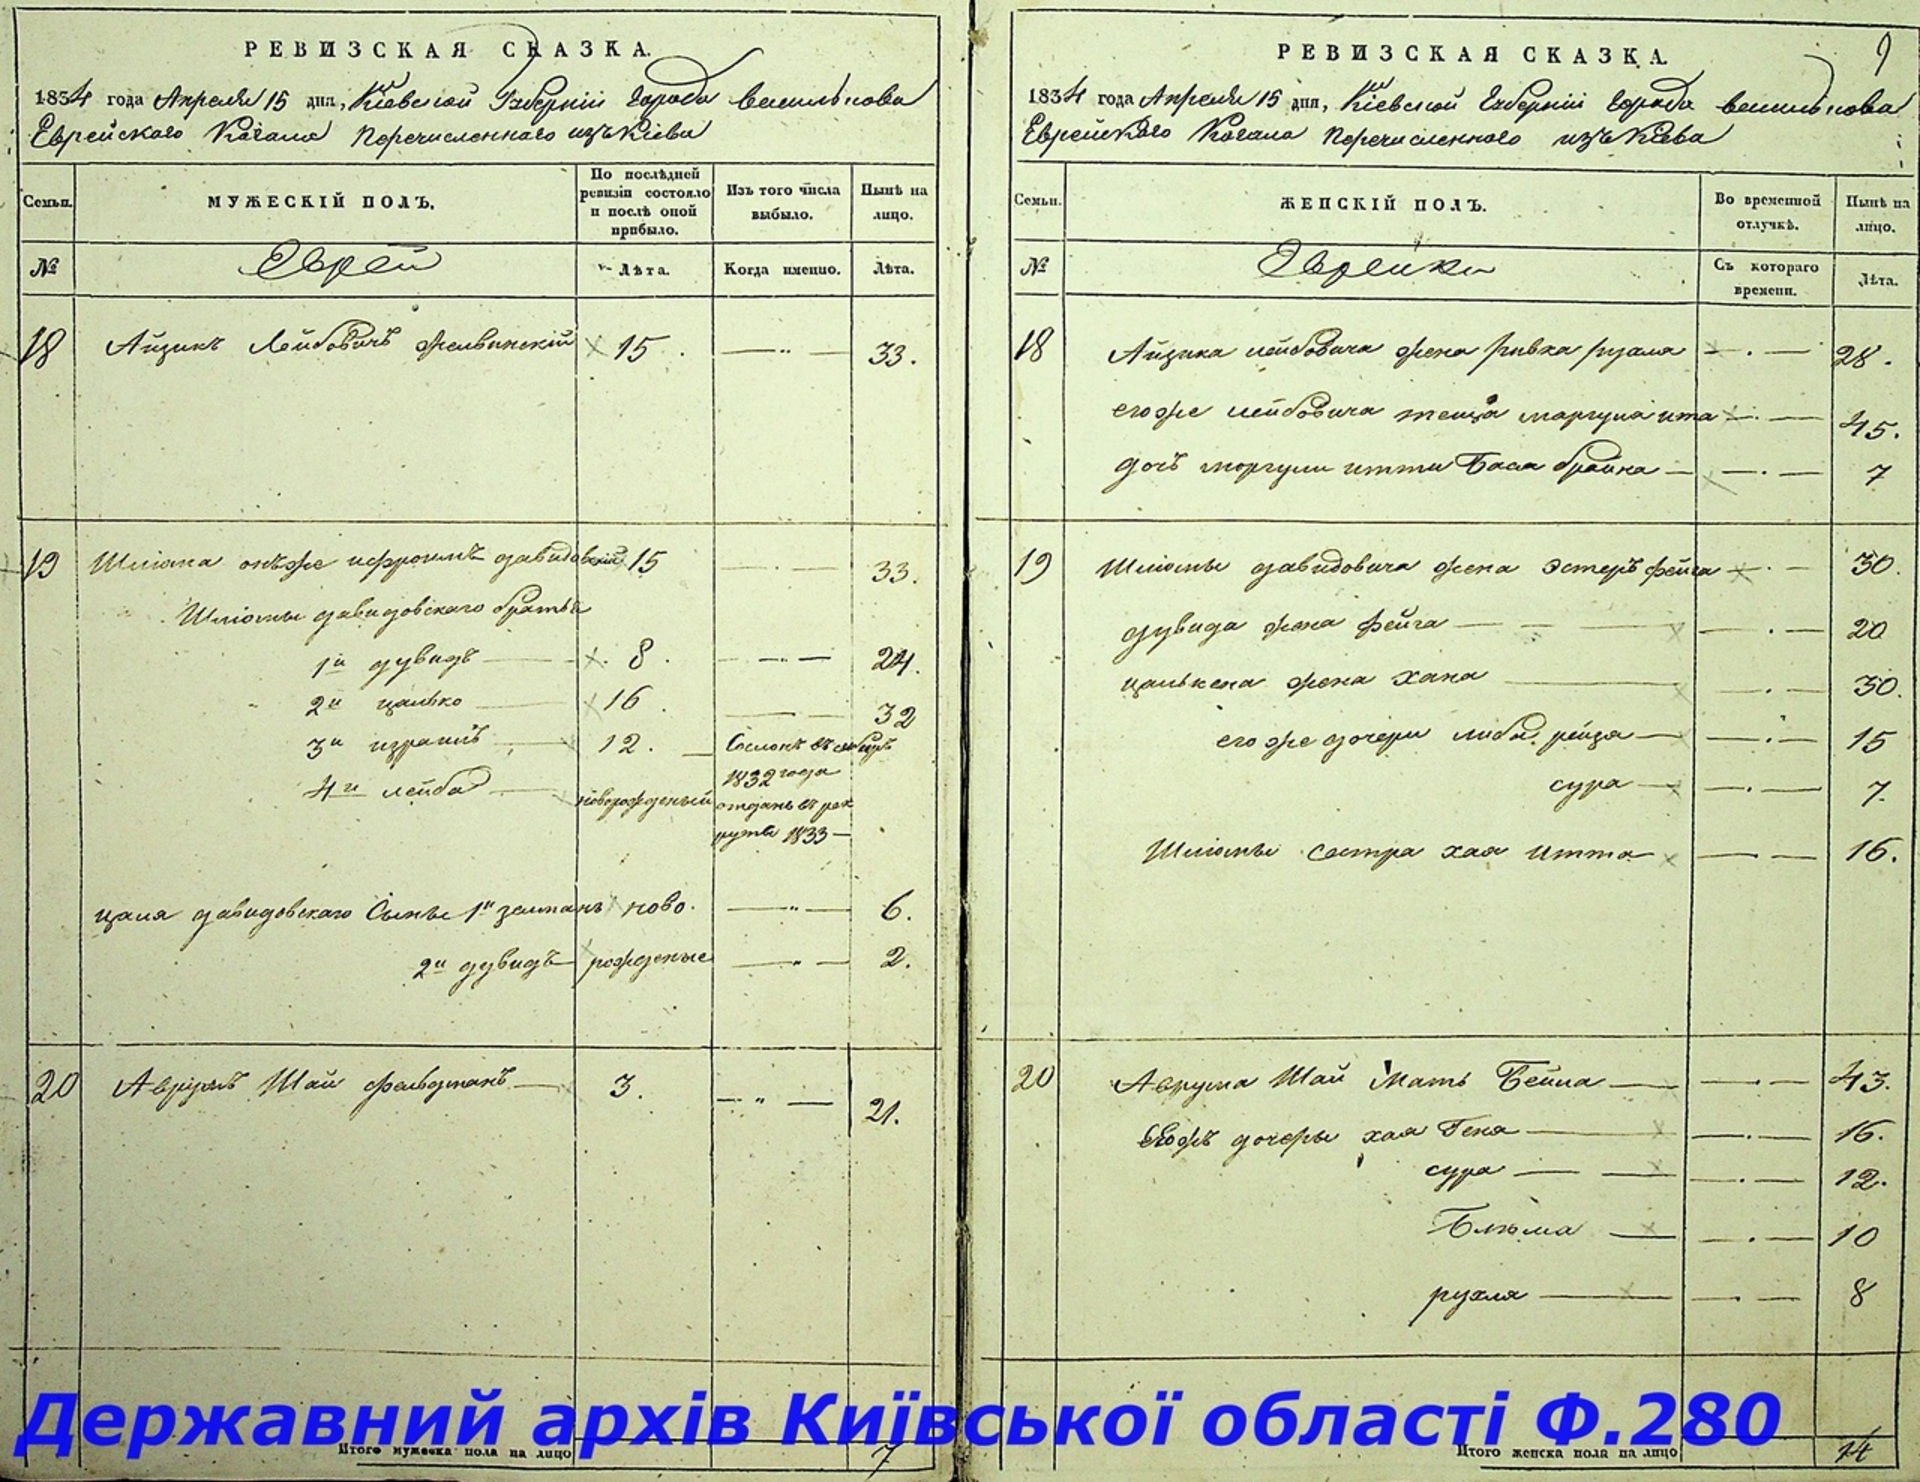 РЕВИЗСКАЯ СКАЗКА.
1834 года Апреля 15 дня, Кіевской Губерніи Города Василькова
Еврейскаго Кагала Перечисленнаго изъ Кіева
Семьи. МУЖЕСКІЙ ПОЛЪ. По послѣдней ревизіи состояло и послѣ оной прибыло. Изъ того числа выбыло. Нынѣ на лицо.
№ Еврей Лѣта. Когда именно. Лѣта.
18 Айзикъ Лейбовичъ 15. 33.
19 Шліома онъже Ифроимъ давидовскій 15 33.
Шліомы давидовскаго братья
1й дувидъ 8. 24.
2й цалько 16. 32
3й израиль 12. Сосланъ въ сибирь
1832 года
4й лейба новорожденый отданъ въ рек
руты 1833
цаля давидовскаго Сыны 1й залманъ ново. 6.
2й дувидъ рожденые 2.
20 Аврумъ Шай фельдманъ 3. 21.
Итого мужеска пола на лицо 7
РЕВИЗСКАЯ СКАЗКА.
9
1834 года Апреля 15 дня, Кіевской Губерніи Города Василькова
Еврейскаго Кагала Перечисленнаго изъ Кіева
Семьи. ЖЕНСКІЙ ПОЛЪ. Во временной отлучкѣ. Нынѣ на лицо.
№ Еврейки Съ котораго времени. Лѣта.
18 Айзика лейбовича жена ривка рузя 28.
егоже лейбовича теща маргуля ита 45.
дочь моргули итти Бася брайна 7
19 Шліомы давидовича жена Эстеръ фейга 30.
дувида жена фейга 20
цалькена жена хана 30.
его же дочери либа рейза 15
сура 7.
Шліомы сестра хая итта 16.
20 Аврума Шай Мать Бейла 43.
Егожъ дочеры хая Гена 16.
сура 12.
Блюма 10
рухля 8
Итого женска пола на лицо 14
Державний архів Київської області Ф.280